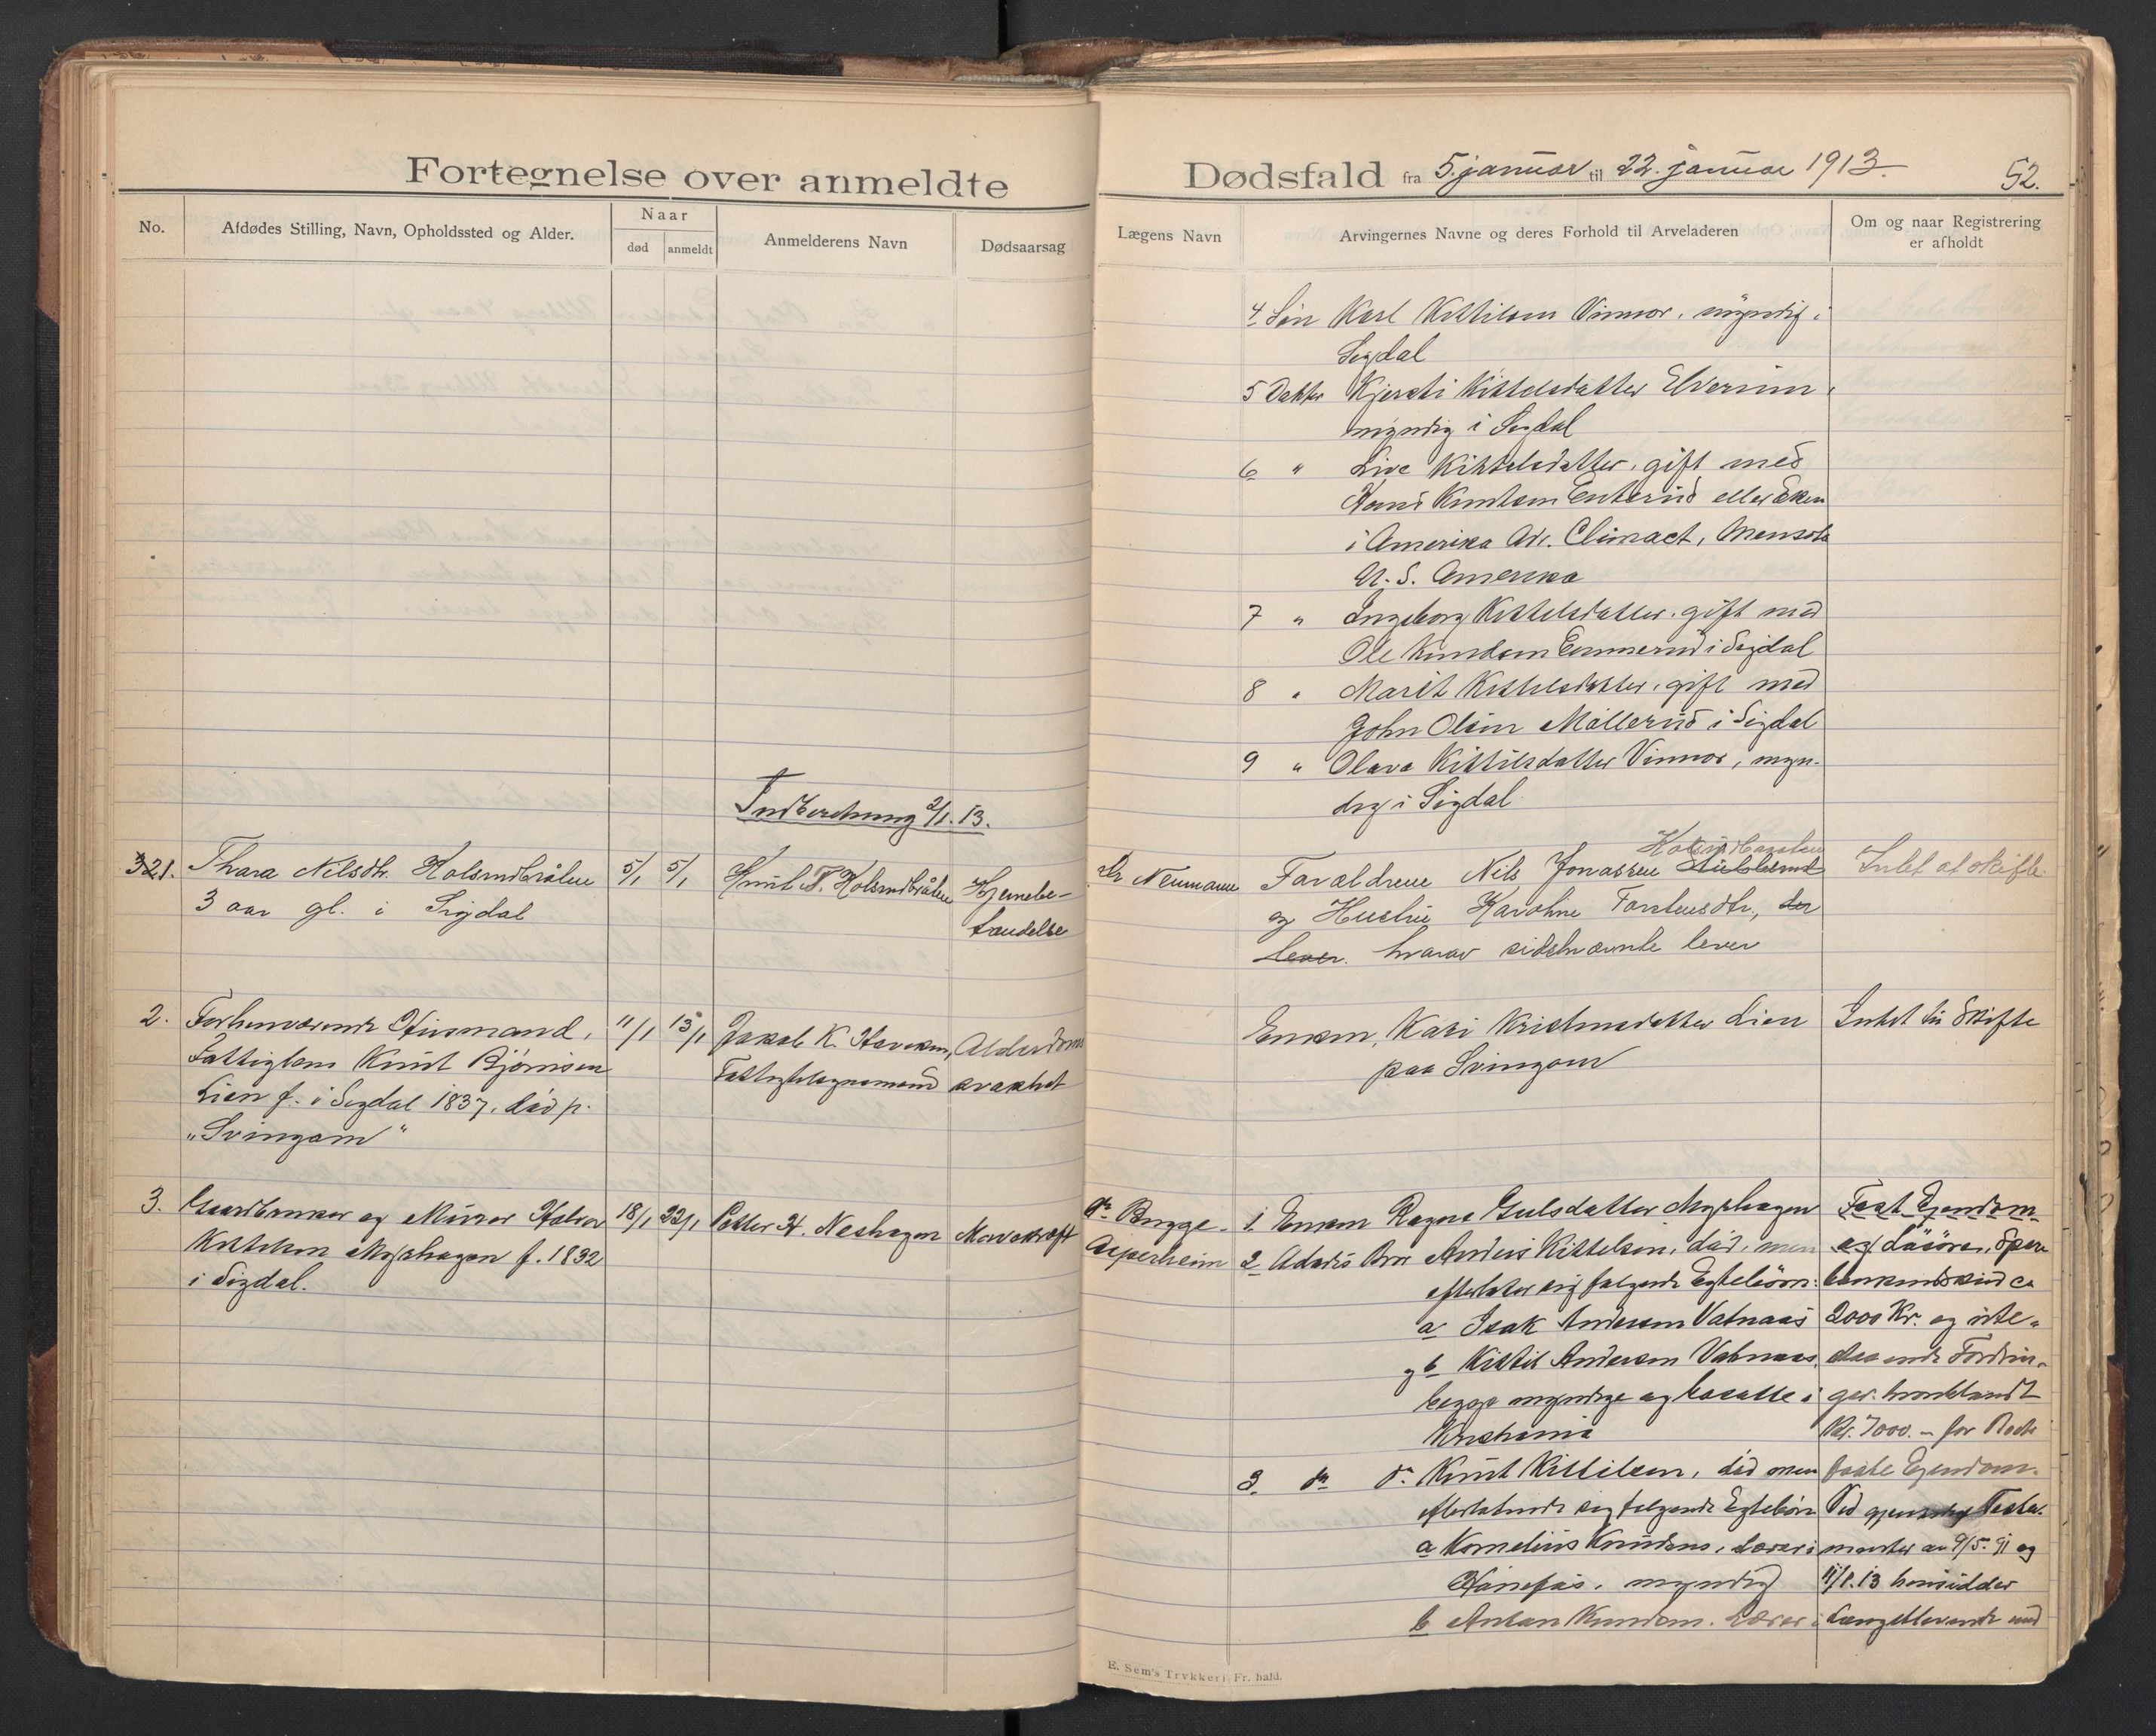 Fortegnelse over anmeldte
Dødsfald fra 5. januar til 22. januar 1913.
52.
No.
Afdødes Stilling, Navn, Opholdssted og Alder.
Naar
død
anmeldt
Anmelderens Navn
Dødsaarsag
Lægens Navn
Arvingernes Navne og deres Forhold til Arveladeren
Om og naar Registrering
er afholdt
4. Søn Karl Kittilsen Vinnor, myndig i
Sigdal
5 Datter Kjersti Kittelsdatter Elverum,
myndig i Sigdal
6 " Live Kittelsdatter, gift med
Hans Knutsen Enterud eller Eken
i Amerika Adr. Climact, Mensota
U.S. Amerika
7 " Ingeborg Kittelsdatter, gift med
Ole Knudsen Emmerud i Sigdal
8 " Marit Kittelsdatter, gift med
John Olsen Møllerud i Sigdal
9 " Olava Kittilsdatter Vinnor, myn-
dig i Sigdal
Indberetning 2/1. 13.
321. Thara Nilsdtr. Holsrudbråten
3 aar gl. i Sigdal
5/1 5/1
Knut T. Holsrudbråten
Hjernebe-
tændelse
Dr Neumann
Forældrene Nils Jonassen Holsrudbraaten
og Hustru Karoline Torstensdtr., der
lever. hvorav sidstnævnte lever
Intet at skifte.
2. Forhenværende Husmand,
Fattiglem Knut Bjørnsen
Lien f. i Sigdal 1837, død p.
"Svingom"
11/1 13/1
Jakob K.
Fattigtilsynsmand
Alderdoms
svakhet
Enken, Kari Kristensdatter Lien
paa Svingom
Intet til Skifte
3. Gaardbruker og Murer Halvor
Kittelsen Myrhagen f. 1832
i Sigdal.
18/1 22/1
Petter H. Neshagen
Mavekræft
Dr. Bugge
1. Enken Ragne Gulsdatter Myrhagen
2 Afdødes Bror Anders Kittelsen, død, men
efterlater sig følgende Egtebørn:
a Isak Andersen Vatnaas
og b Kittil Andersen Vatnaas,
begge myndige og bosatte i
Kristiania
3. do do Knut Kittilsen, død men
efterlatende sig følgende Egtebørn
a Kornelius Knudsen, Lærer i
Hønefos, myndig
b Anton Knudsen, Lærer i
Fast Ejendom
og Løsøre, Spare
bankindskud ca
2000 Kr. og ute-
staaende Fordrin-
ger. hvoriblandt
Kr. 7000.- for
faste Ejendom.
Ved gjensidig Testa-
menter av 9/5. 91 og
11/1. 13 hensidder
Længstlevende med
E. Sem's Trykkeri Fr. hald.